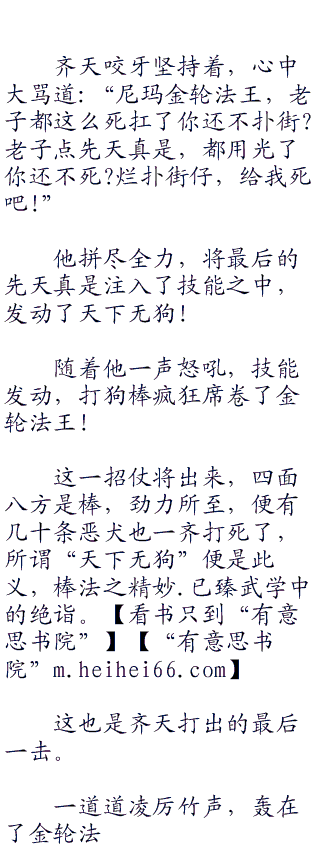 齐天咬牙坚持着，心中
大骂道：“尼玛金轮法王，老
子都这么死扛了你还不扑街?
老子点先天真是，都用光了
你还不死?烂扑街仔，给我死
吧!”
他拼尽全力，将最后的
先天真是注入了技能之中，
发动了天下无狗!
随着他一声怒吼，技能
发动，打狗棒疯狂席卷了金
轮法王!
这一招仗将出来，四面
八方是棒，劲力所至，便有
几十条恶犬也一齐打死了，
所谓“天下无狗”便是此
义，棒法之精妙.已臻武学中
的绝诣。【看书只到“有意
思书院”】【“有意思书
院”m.heihei66.com】
这也是齐天打出的最后
一击。
一道道凌厉竹声，轰在
了金轮法